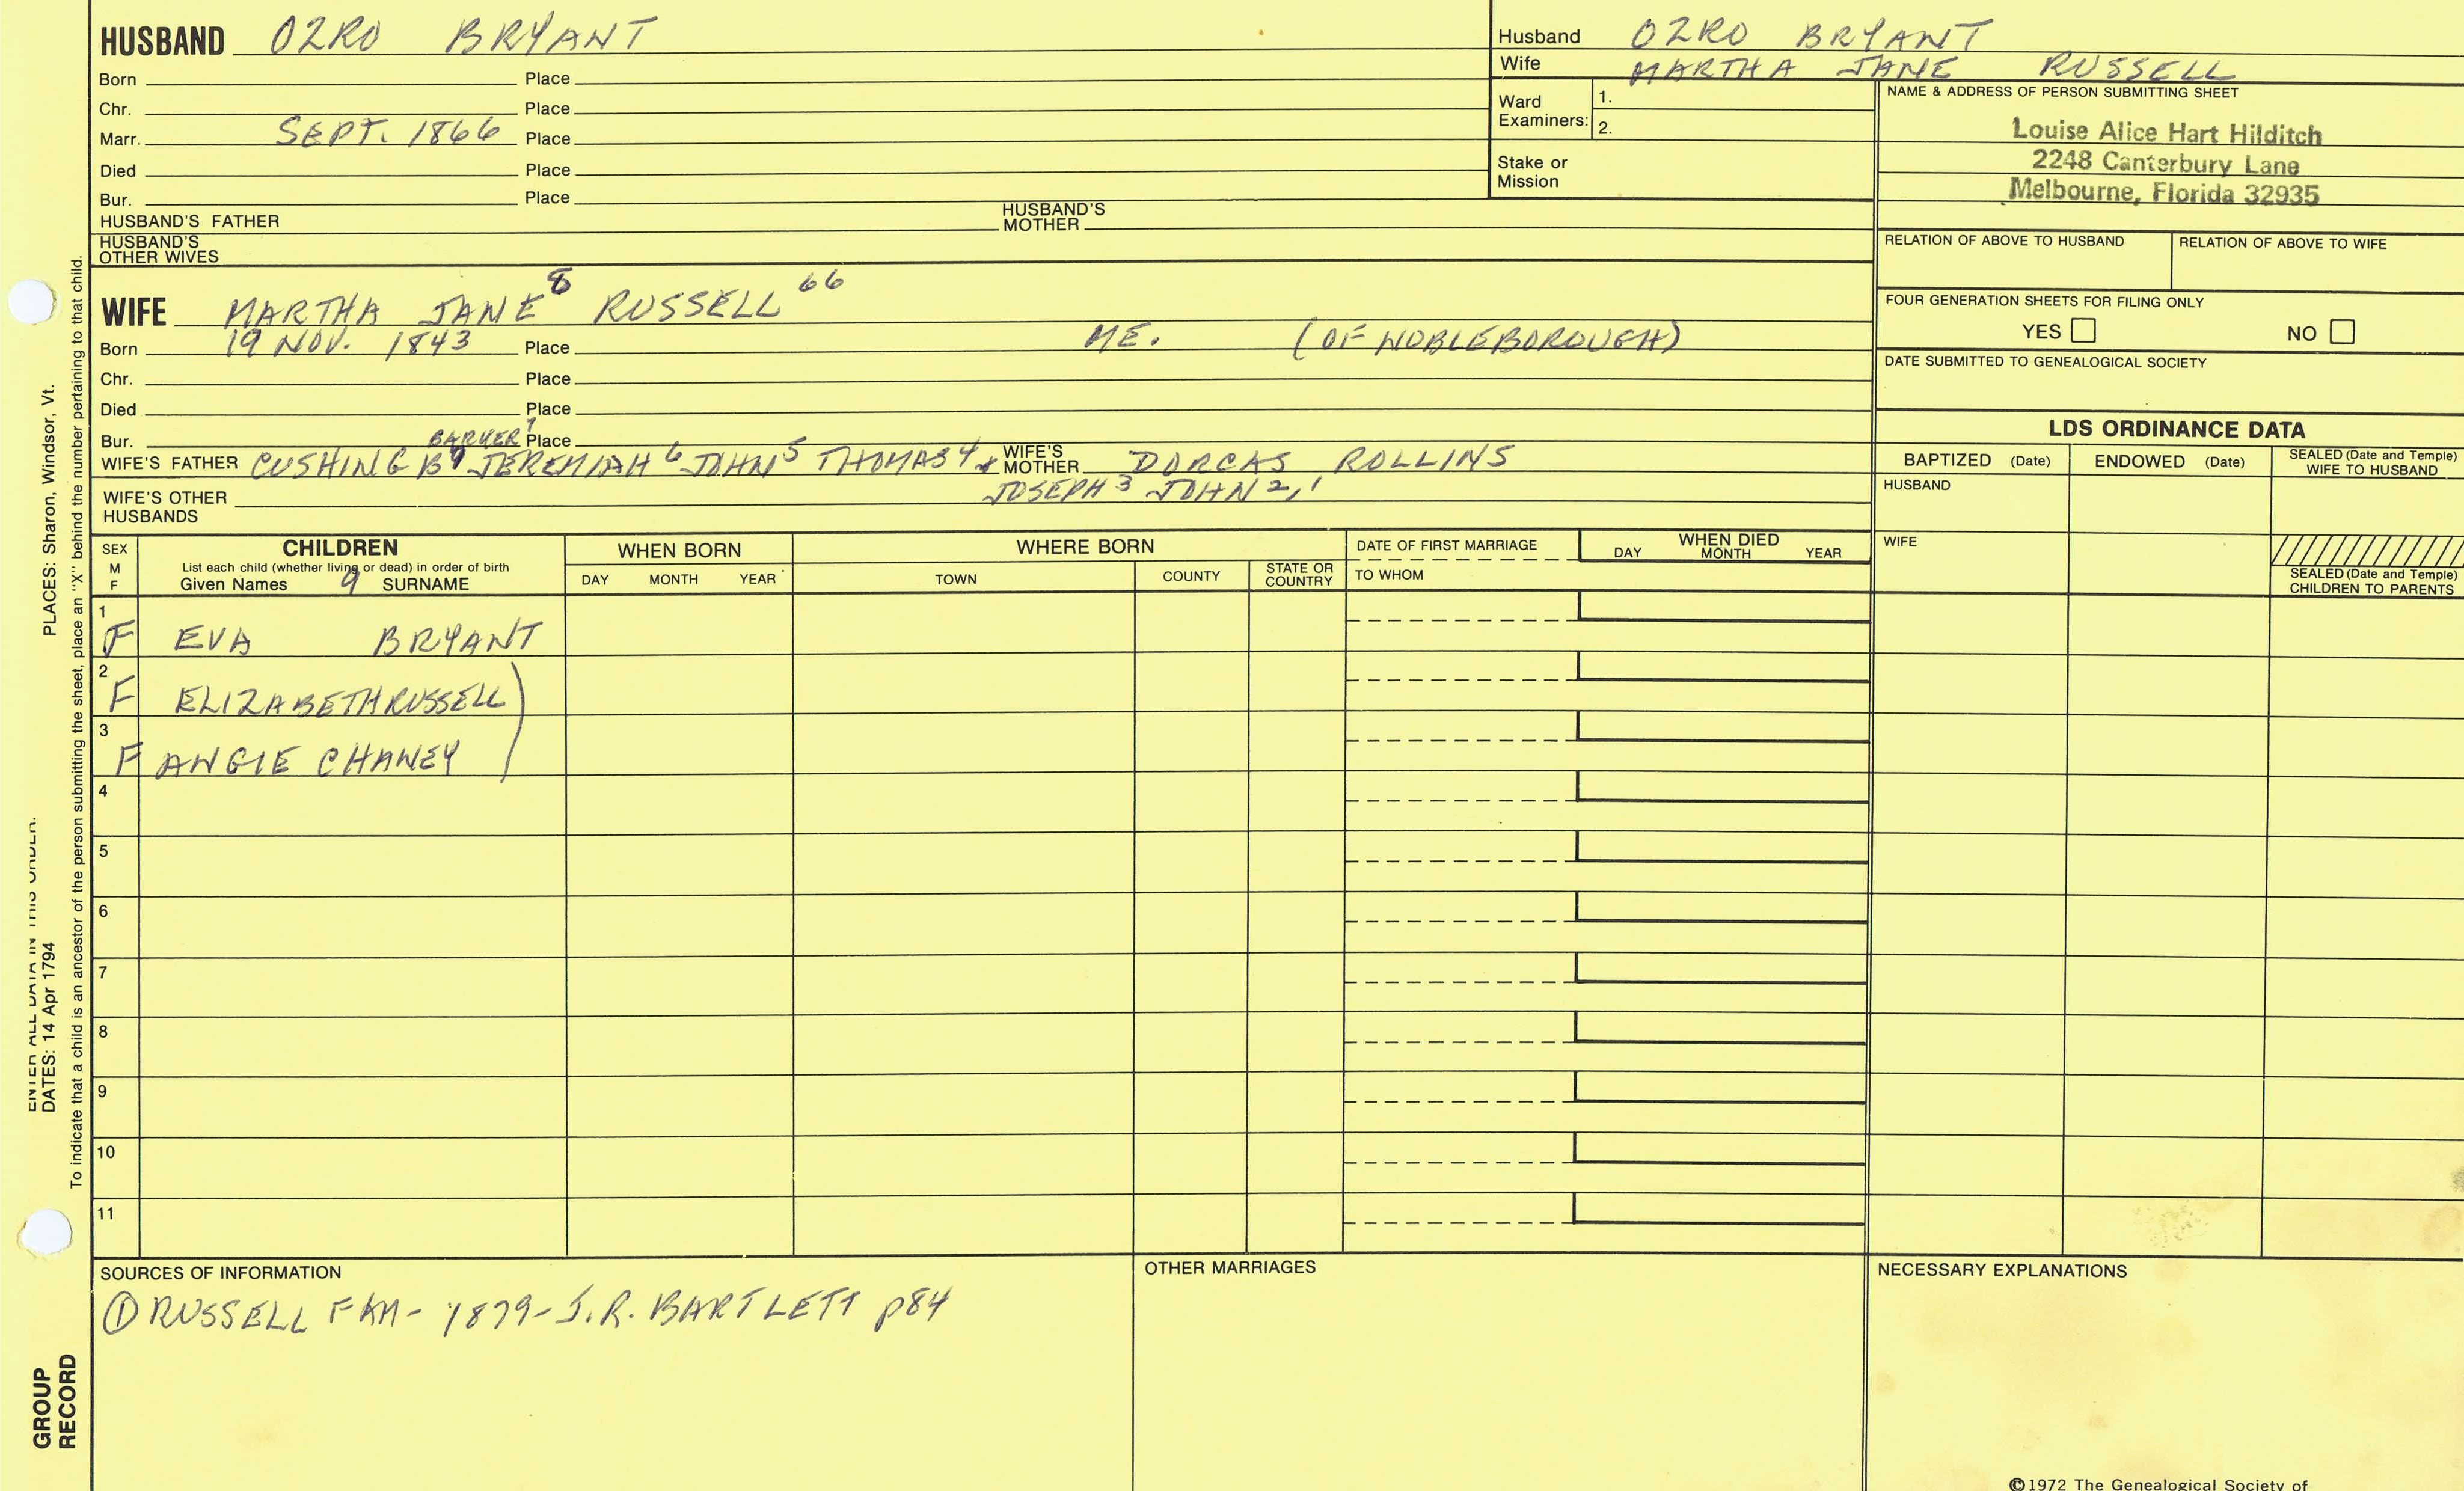 HUSBAND OZRO BRYANT
Born Place
Chr. Place
Marr. SEPT. 1866 Place
Died Place
Bur. Place
HUSBAND'S FATHER HUSBAND'S MOTHER
HUSBAND'S OTHER WIVES
Husband OZRO BRYANT
Wife MARTHA JANE RUSSELL
Ward Examiners: 1.
2.
Stake or Mission
NAME & ADDRESS OF PERSON SUBMITTING SHEET
Louise Alice Hart Hilditch
2248 Canterbury Lane
Melbourne, Florida 32935
RELATION OF ABOVE TO HUSBAND RELATION OF ABOVE TO WIFE
FOUR GENERATION SHEETS FOR FILING ONLY
YES NO
DATE SUBMITTED TO GENEALOGICAL SOCIETY
WIFE MARTHA JANE 8 RUSSELL 66
Born 19 NOV. 1843 Place ME. (OF NOBLEBOROUGH)
Chr. Place
Died Place
Bur. Place
BARKER 7
WIFE'S FATHER CUSHING B JEREMIAH 6 JOHN 5 THOMAS 4 WIFE'S MOTHER DORCAS ROLLINS
JOSEPH 3 JOHN 2,1
WIFE'S OTHER HUSBANDS
LDS ORDINANCE DATA
BAPTIZED (Date) ENDOWED (Date) SEALED (Date and Temple) WIFE TO HUSBAND
HUSBAND
WIFE
SEALED (Date and Temple) CHILDREN TO PARENTS
SEX M F
CHILDREN
List each child (whether living or dead) in order of birth
Given Names 9 SURNAME
WHEN BORN
DAY MONTH YEAR
WHERE BORN
TOWN COUNTY STATE OR COUNTRY
DATE OF FIRST MARRIAGE
TO WHOM
WHEN DIED
DAY MONTH YEAR
1 F EVA BRYANT
2 F ELIZABETH RUSSELL )
3 F ANGIE CHANEY
4
5
6
7
8
9
10
11
SOURCES OF INFORMATION
① RUSSELL FAM - 1879 - J.R. BARTLETT p84
OTHER MARRIAGES
NECESSARY EXPLANATIONS
©1972 The Genealogical Society of
ENTER ALL DATA IN THIS ORDER:
DATES: 14 Apr 1794 PLACES: Sharon, Windsor, Vt.
To indicate that a child is an ancestor of the person submitting the sheet, place an "X" behind the number pertaining to that child.
GROUP
RECORD